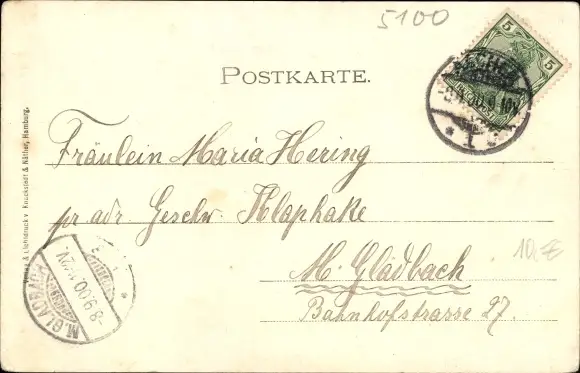 5100
5
5
AACHEN
POSTKARTE.
Verlag & Lichtdruck v. Knackstedt & Näther, Hamburg.
Fräulein Maria Hering
pr adr Geschw. Klaphake
M. Gladbach
Bahnhofstrasse 27.
10,-€
M. GLADBACH
-8.9.00.